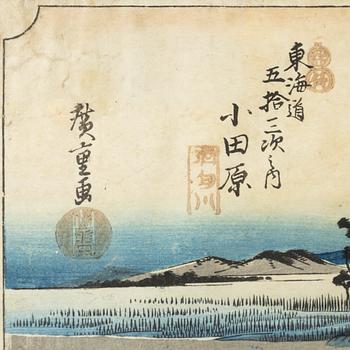 東海道
五拾三次之内
小田原
酒匂川
廣重画